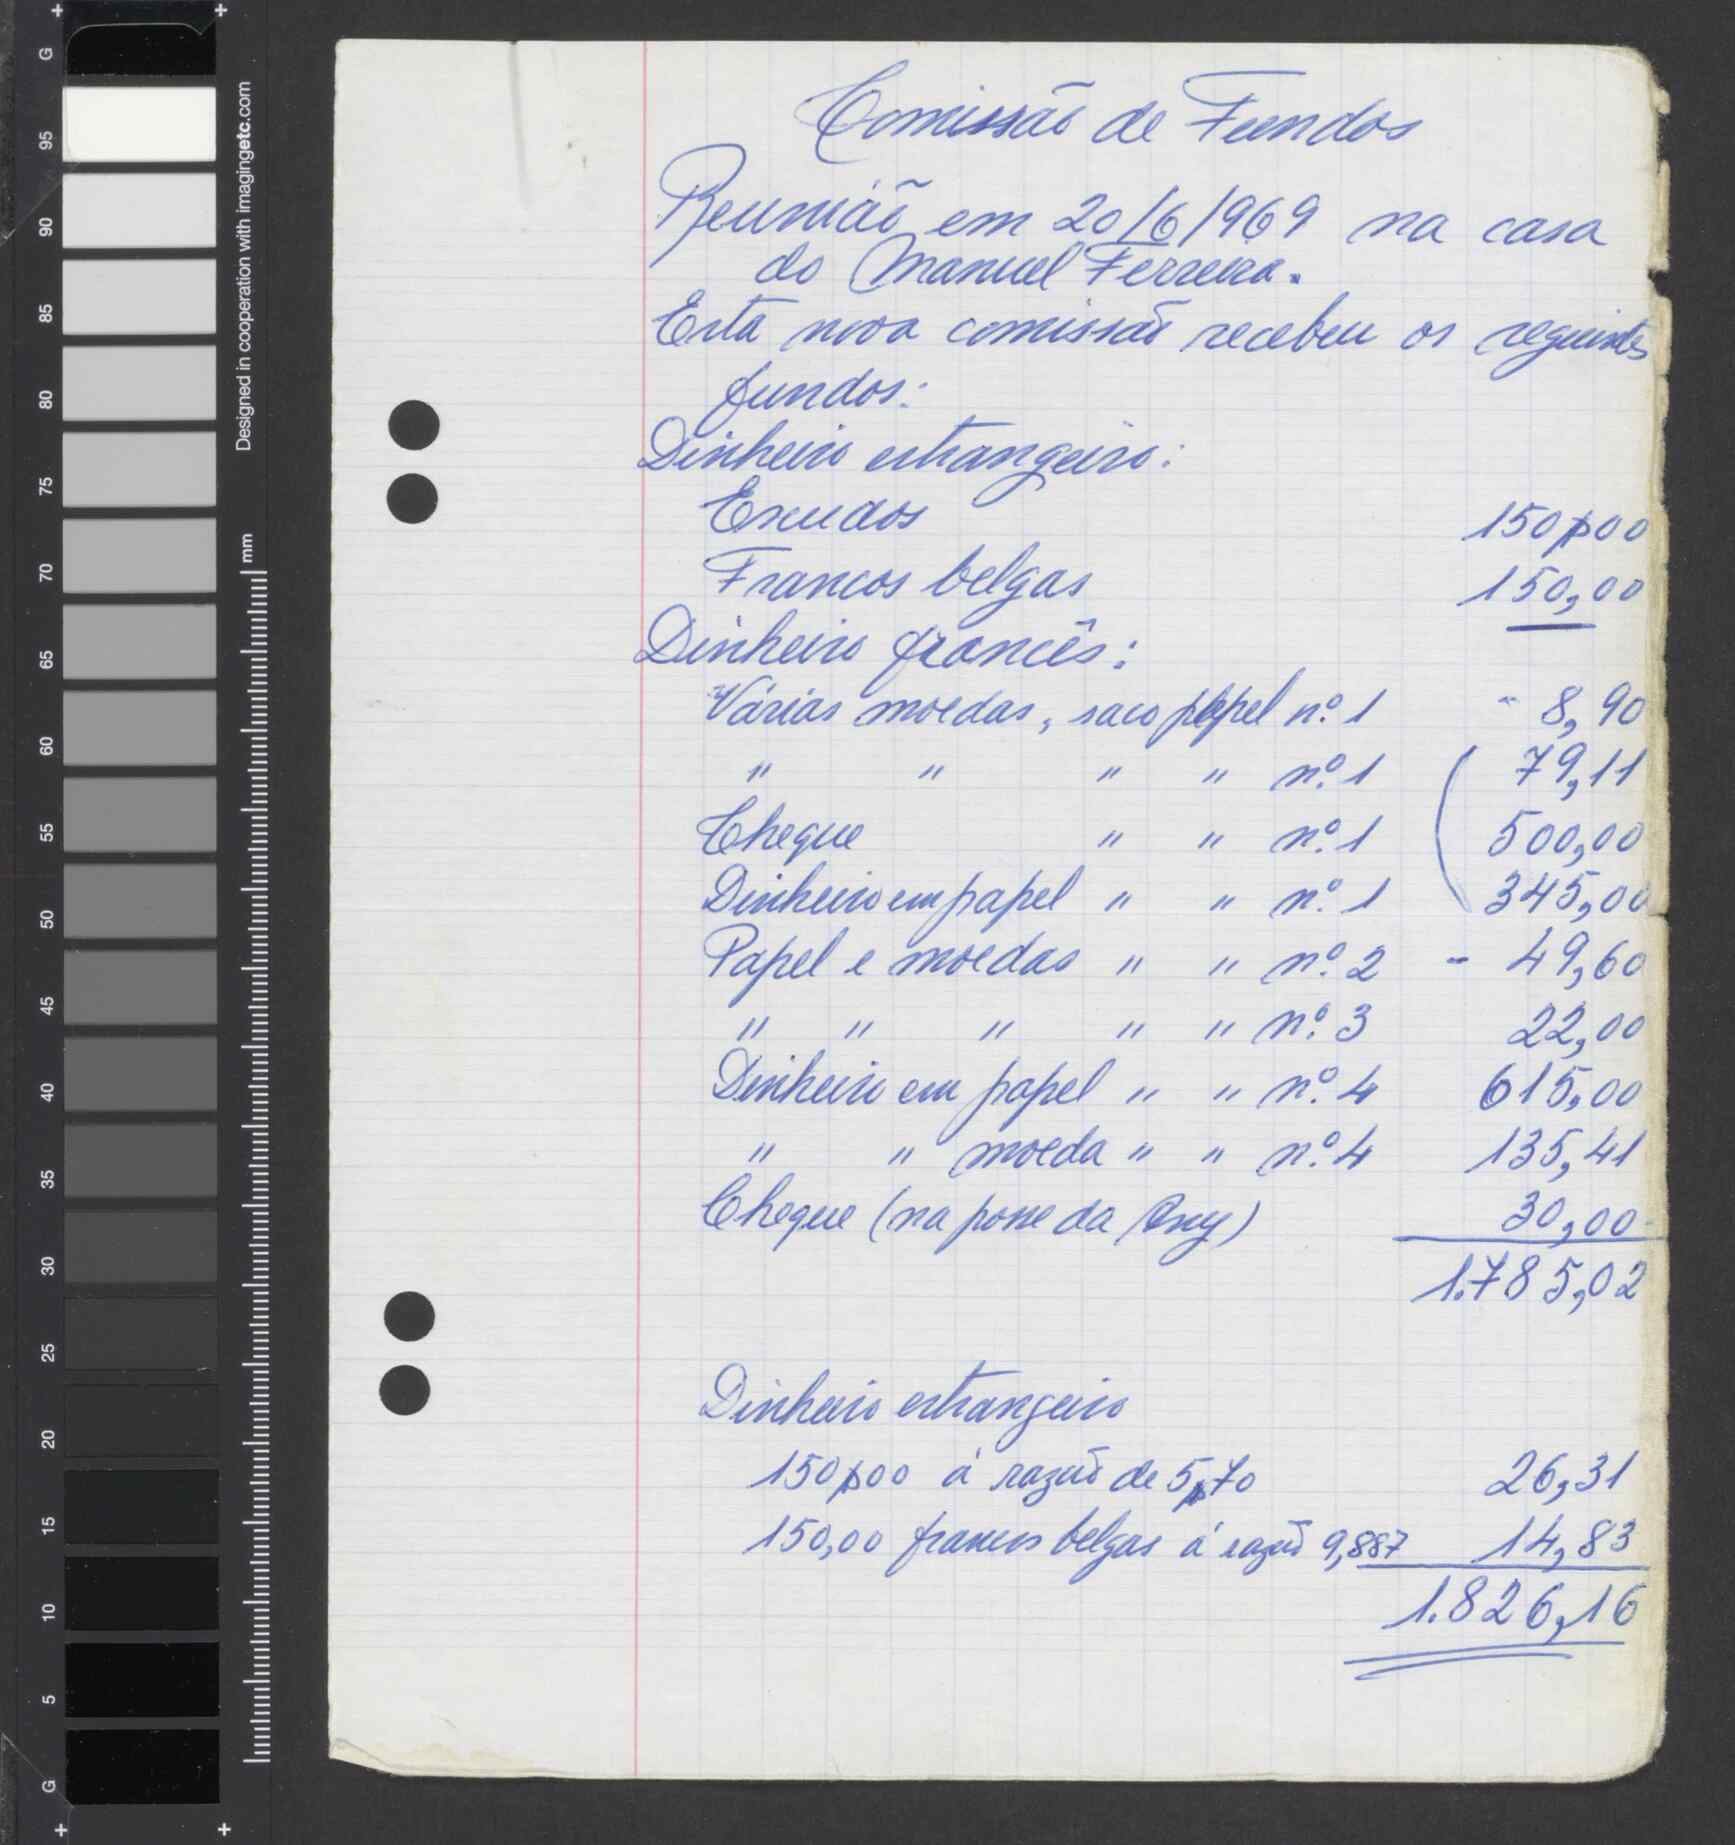 Comissão de Fundos
Reunião em 20/6/969 na casa
do Manuel Ferreira.
Esta nova comissão recebeu os seguintes
fundos:
Dinheiro estrangeiro:
Escudos 150$00
Francos belgas 150,00
Dinheiro francês:
Várias moedas, saco papel nº 1 - 8,90
" " " " nº 1 ( 79,11
Cheque " " nº 1 500,00
Dinheiro em papel " " nº 1 345,00
Papel e moedas " " nº 2 - 49,60
" " " " " nº 3 22,00
Dinheiro em papel " " nº 4 615,00
" " moeda " " nº 4 135,41
Cheque (na posse da ) 30,00
1.785,02
Dinheiro estrangeiro
150$00 á razão de 5$70 26,31
150,00 francos belgas á razão 9,887 14,83
1.826,16
G
95
90
85
80
75
70
65
60
55
50
45
40
35
30
25
20
15
10
5
G
Designed in cooperation with imagingetc.com
mm